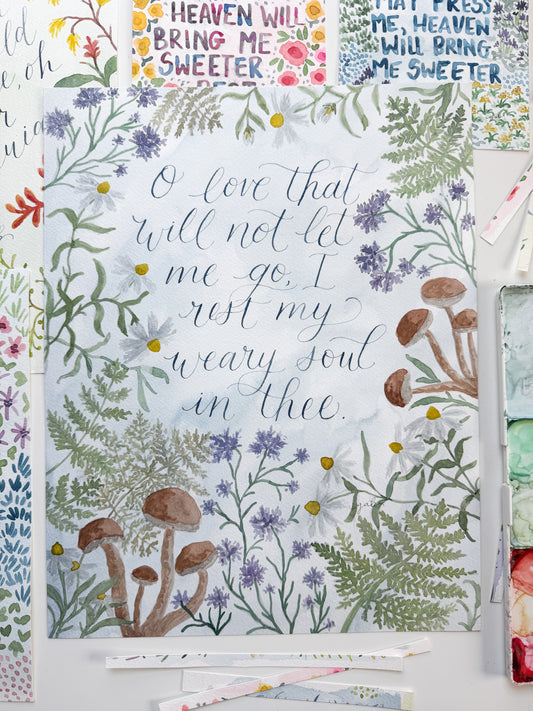 HEAVEN WILL
BRING ME
SWEETER
MAY PRESS
ME, HEAVEN
WILL BRING
ME SWEETER
O love that
will not let
me go, I
rest my
weary soul
in thee.